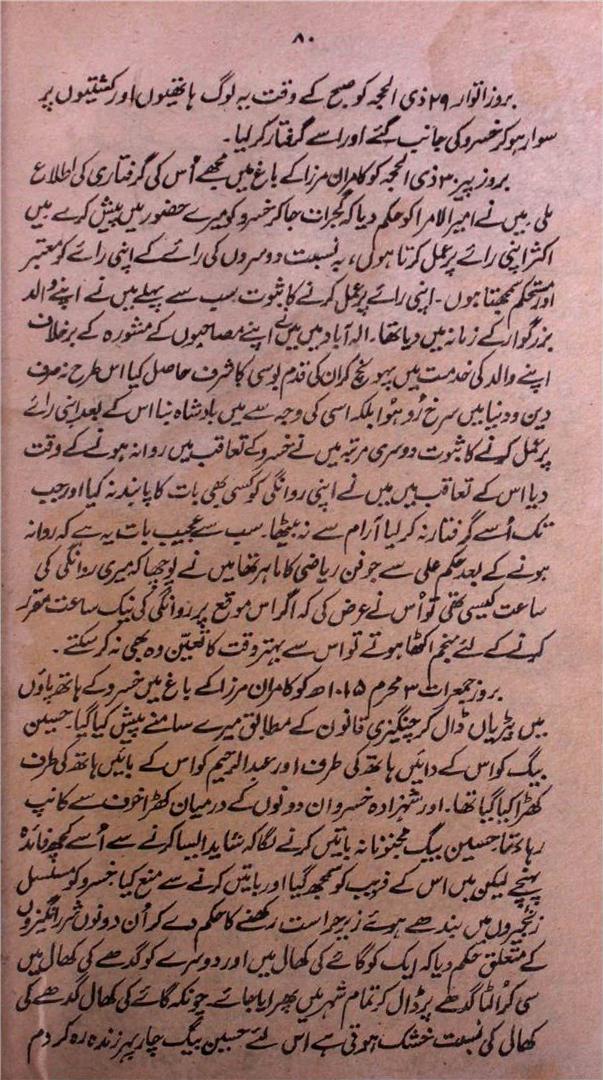 ۸۰
بروز اتوار ۲۹ ذی الحجہ کو صبح کے وقت یہ لوگ ہاتھیوں اور کشتیوں پر
سوار ہو کر خسرو کی جانب گئے اور اسے گرفتار کر لیا۔
بروز پیر ۳۰ ذی الحجہ کو کامران مرزا کے باغ میں مجھے اُس کی گرفتاری کی اطلاع
ملی میں نے امیر الامرا کو حکم دیا کہ گجرات جا کر خسرو کو میرے حضور میں پیش کرے میں
اکثر اپنی رائے پر عمل کرتا ہوں، بہ نسبت دوسروں کی رائے کے اپنی رائے کو معتبر
اور مستحکم سمجھتا ہوں۔ اپنی رائے پر عمل کرنے کا ثبوت سب سے پہلے میں نے اپنے والد
بزرگوار کے زمانہ میں دیا تھا۔ الہ آباد میں میں نے اپنے مصاحبوں کے مشورہ کے برخلاف
اپنے والد کی خدمت میں پہونچ کر ان کی قدم بوسی کا شرف حاصل کیا اس طرح نہ صرف
دین و دنیا میں سرخ رُو ہُوا بلکہ اسی کی وجہ سے میں بادشاہ بنا اس کے بعد اپنی رائے
پر عمل کرنے کا ثبوت دوسری مرتبہ میں نے خسرو کے تعاقب میں روانہ ہونے کے وقت
دیا اس کے تعاقب میں میں نے اپنی روانگی کو کسی بھی بات کا پابند نہ کیا اور جب
تک اُسے گرفتار نہ کر لیا آرام سے نہ بیٹھا۔ سب سے عجیب بات یہ ہے کہ روانہ
ہونے کے بعد حکم علی سے جو فن ریاضی کا ماہر تھا میں نے پوچھا کہ میری روانگی کی
ساعت کیسی تھی تو اُس نے عرض کی کہ اگر اس موقع پر روانگی کی نیک ساعت مقرر
کرنے کے لئے منجم اکٹھا ہوتے تو اس سے بہتر وقت کا تعیّن وہ بھی نہ کر سکتے۔
بروز جمعرات ۳ محرم ۱۰۱۵ھ کو کامران مرزا کے باغ میں خسرو کے ہاتھ پاؤں
میں بیڑیاں ڈال کر چنگیزی قانون کے مطابق میرے سامنے پیش کیا گیا۔ حسین
بیگ کو اس کے دائیں ہاتھ کی طرف اور عبد الرحیم کو اس کے بائیں ہاتھ کی طرف
کھڑا کیا گیا تھا۔ اور شہزادہ خسرو ان دونوں کے درمیان کھڑا خوف سے کانپ
رہا تھا حسین بیگ مجنونانہ باتیں کرنے لگا کہ شاید ایسا کرنے سے اُسے کچھ فائدہ
پہنچے لیکن میں اس کے فریب کو سمجھ گیا اور باتیں کرنے سے منع کیا خسرو کو مسلسل
زنجیروں میں بندھے ہوئے زیر حراست رکھنے کا حکم دے کر اُن دونوں شر انگیزوں
کے متعلق حکم دیا کہ ایک کو گائے کی کھال میں اور دوسرے کو گدھے کی کھال میں
سی کر اُلٹا گدھے پر ڈال کر تمام شہر میں پھرایا جائے۔ چونکہ گائے کی کھال گدھے کی
کھال کی نسبت خشک ہوتی ہے اس لئے حسین بیگ چار پہر زندہ رہ کر دم